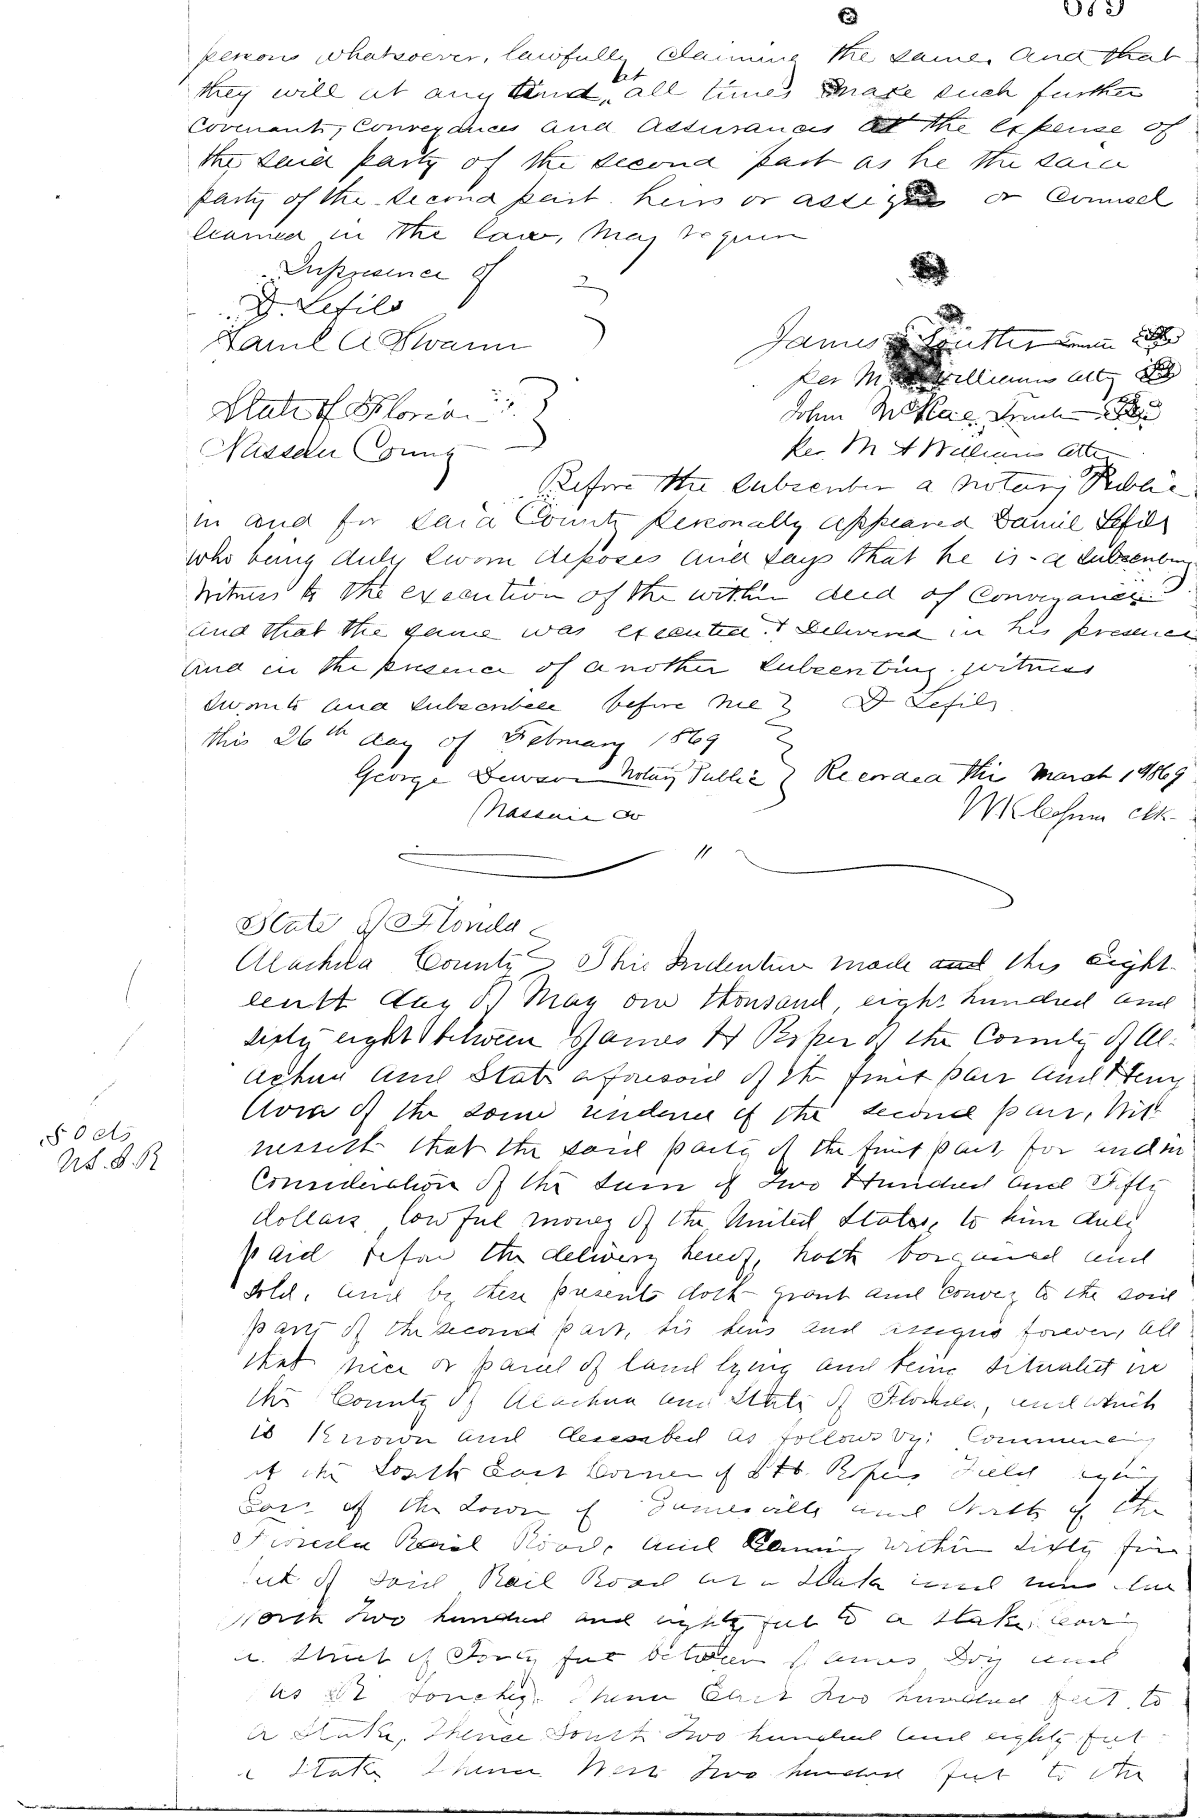 679
persons whatsoever, lawfully claiming the same. And that
they will at any and at all times make such further
Covenants, Conveyances and Assurances at the expense of
the said party of the second part as he the said
party of the second part heirs or assigns or Counsel
learned in the law, may require
In presence of
D. Lefils
Saml A Swann
James Soutter Trustee
per M. A Williams atty
State of Florida
John McRae Trustee
Nassau County
Per M A Williams atty
Before the subscriber a notary Public
in and for said County personally appeared Daniel Lefils
who being duly sworn deposes and says that he is a subscribing
Witness to the execution of the within deed of Conveyance
and that the same was executed & Delivered in his presence
and in the presence of another subscribing witness
Sworn to and subscribed before me D Lefils
this 26th day of February 1869
George Dewson Notary Public Recorded this March 1 1869
Nassau Co
Clk
State of Florida
Alachua County This Indenture made and this Eight-
eenth day of May one thousand, eight hundred and
sixty eight between James H Roper of the County of Al-
achua and State aforesaid of the first part and Henry
of the same of the second part, Wit-
nesseth that the said party of the first part for and in
50 cts
U.S.I.R
Consideration of the sum of Two Hundred and Fifty
dollars, lawful money of the United States, to him duly
paid before the delivery hereof, hath bargained and
sold, and by these presents doth grant and convey to the said
party of the second part, his heirs and assigns forever, all
that piece or parcel of land lying and being situated in
the County of Alachua and State of Florida, and which
is Known and described as follows by: Commencing
at the South East Corner of J H. Ropers Field lying
East of the Town of Gainesville and North of the
Florida Rail Road, and running within Sixty five
feet of said Rail Road at a Stake and runs due
North Two hundred and eighty feet to a stake, leaving
a Street of Forty feet between James Doig and
as it touches. Thence East Two hundred feet to
a Stake, Thence South Two hundred and eighty feet
a Stake Thence West Two hundred feet to the